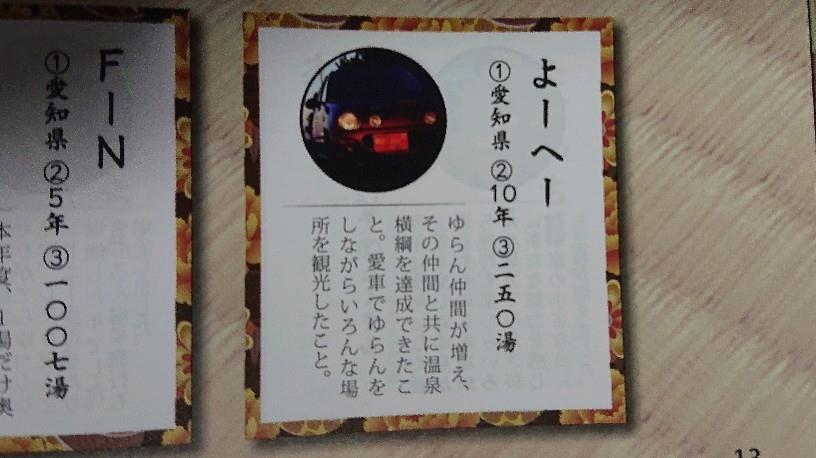 よーへー
①愛知県 ②10年 ③二五〇湯
ゆらん仲間が増え、
その仲間と共に温泉
横綱を達成できたこ
と。愛車でゆらんを
しながらいろんな場
所を観光したこと。
FIN
①愛知県 ②5年 ③一〇〇七湯
本年度、1湯だけ奥
13